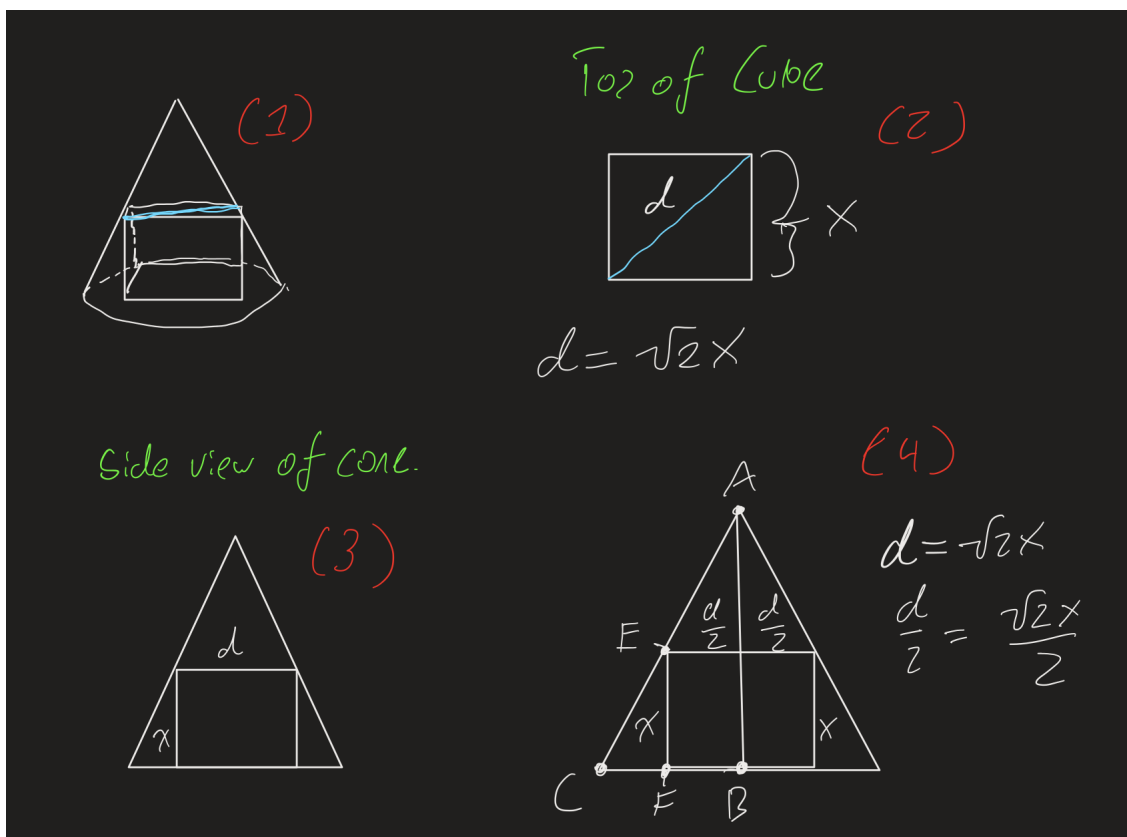 (1)
Top of Cube
(2)
d
x
d = √2x
Side view of cone.
(3)
d
x
(4)
A
d = √2x
d/2 = √2x/2
d/2 d/2
E
x x
C F B